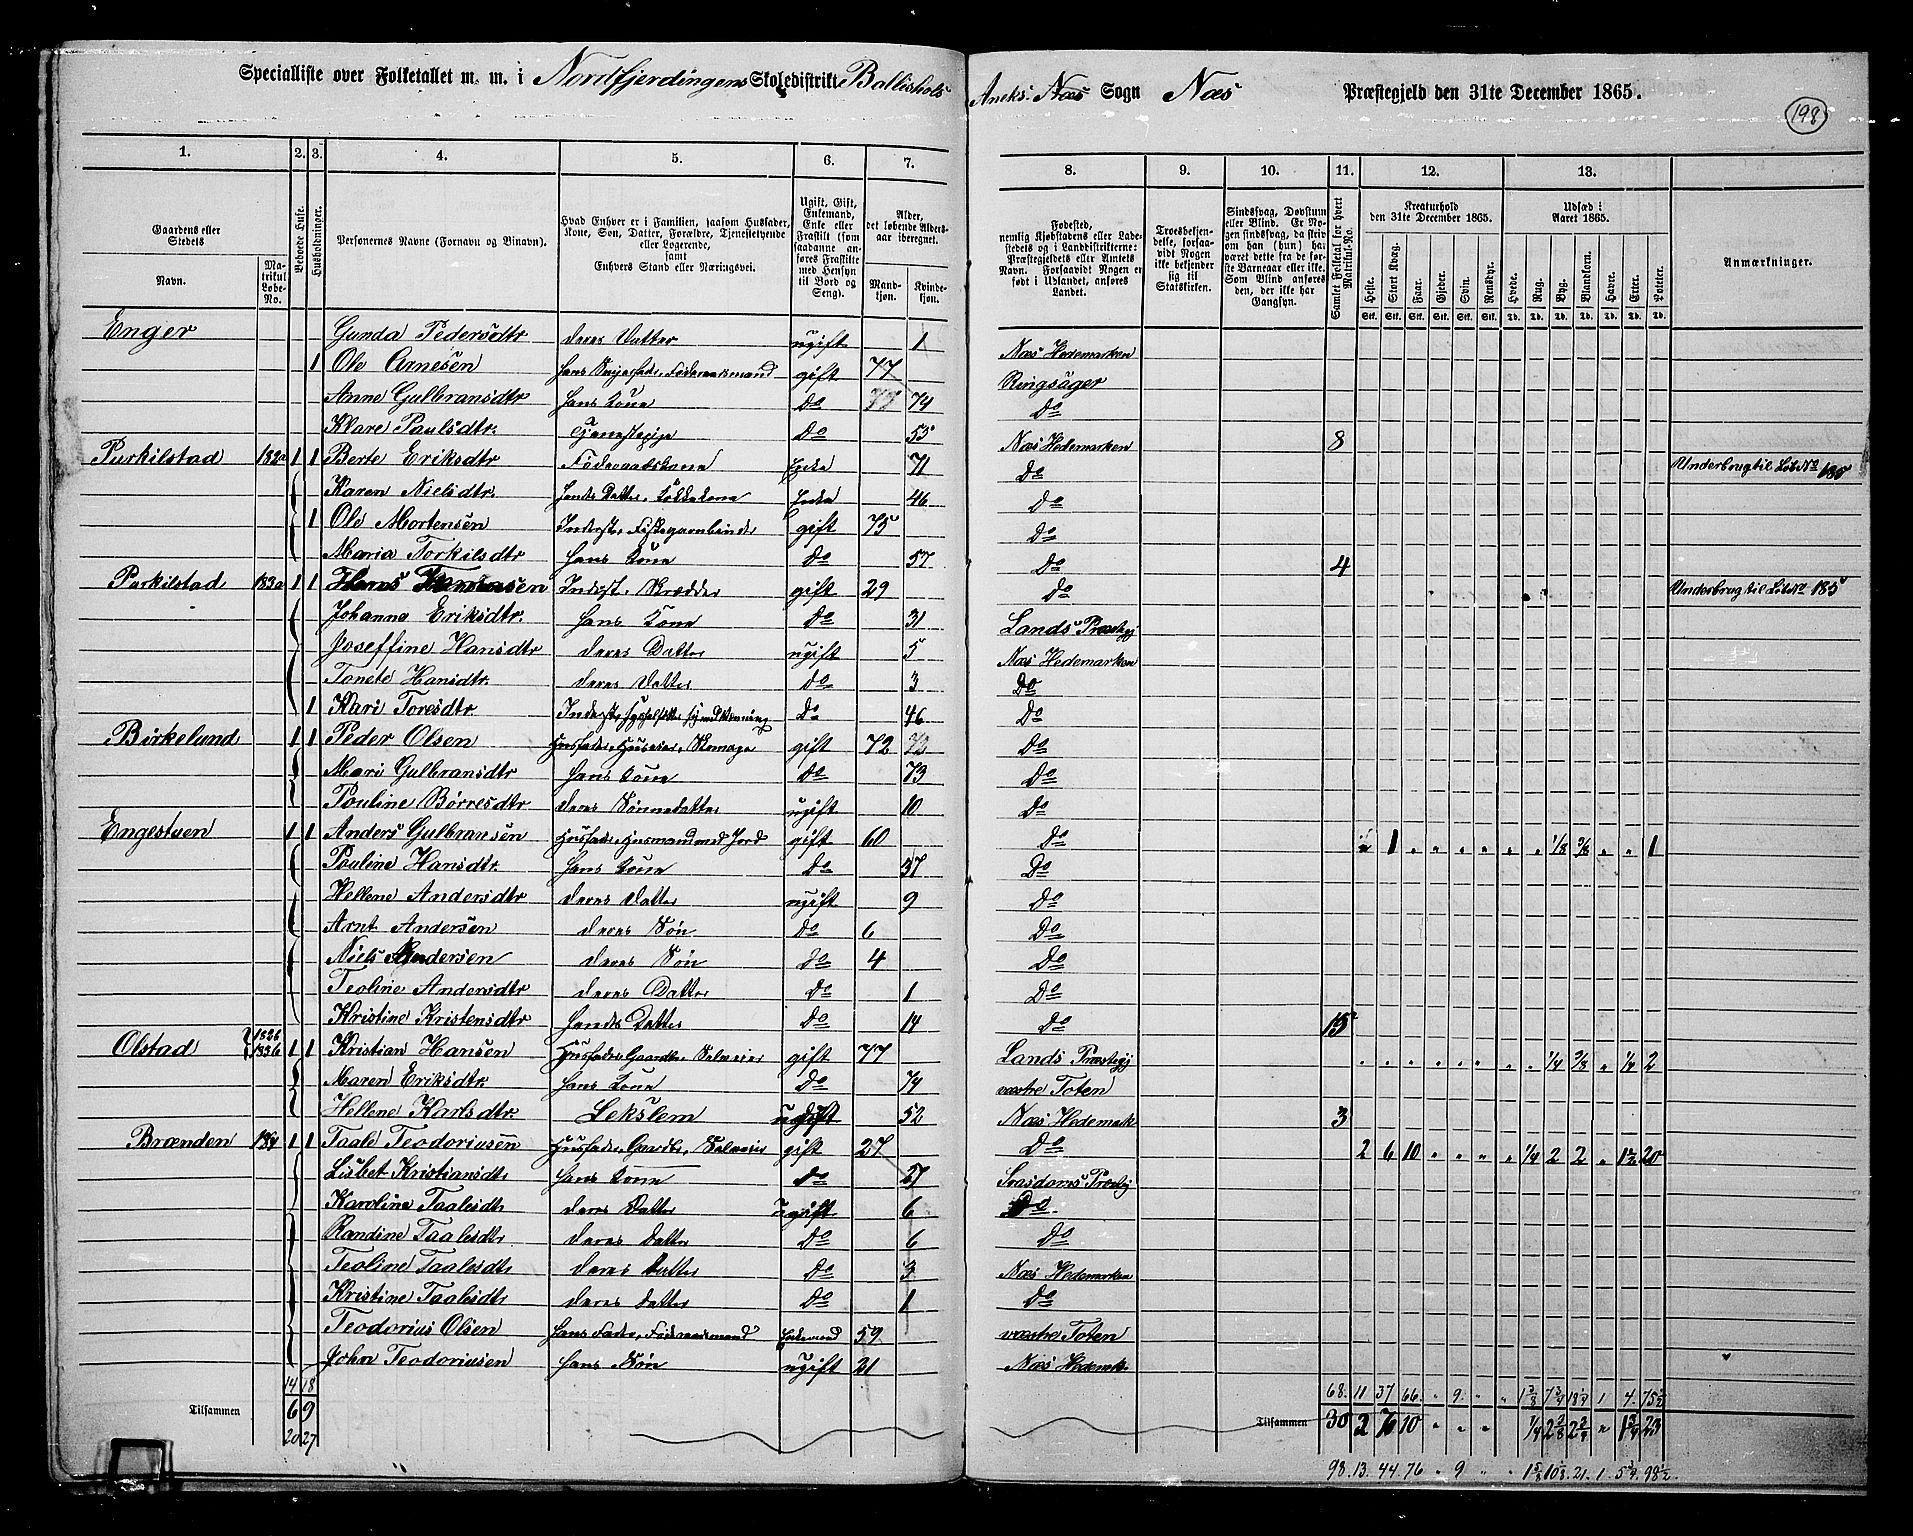 Specialliste over Folketallet m. m. i Nordfjerdingens Skoledistrikt Balleshols Aneks Næs Sogn Næs Præstegjeld den 31te December 1865.
198
1. 2. 3. 4. 5. 6. 7. 8. 9. 10. 11. 12. 13.
Gaardens eller Stedets
Navn. Matrikul Løbe-No.
Beboede Huse.
Husholdninger.
Personernes Navne (Fornavn og Binavn).
Hvad Enhver er i Familien, saasom Husfader, Kone, Søn, Datter, Forældre, Tjenestetyende eller Logerende, samt Enhvers Stand eller Næringsvei.
Ugift, Gift, Enkemand, Enke eller Fraskilt (som saadanne anføres Fraskilte med Hensyn til Bord og Seng).
Alder, det løbende Aldersaar iberegnet.
Mandkjøn. Kvindekjøn.
Fødested, nemlig Kjøbstadens eller Ladestedets og i Landdistrikterne: Præstegjeldets eller Amtets Navn. Forsaavidt Nogen er født i Udlandet, anføres Landet.
Troesbekjendelse, forsaavidt Nogen ikke bekjender sig til Statskirken.
Sindssvag, Døvstum eller Blind. Er Nogen sindssvag, da tilføies om han (hun) har været dette fra de første Barneaar eller ikke. Som Blind anføres den, der ikke har Gangsyn.
Samlet Folketal for hvert Matrikul-No.
Kreaturhold den 31te December 1865.
Heste. Stort Kvæg. Faar. Gjeder. Svin. Rensdyr.
Udsæd i Aaret 1865.
Hvede. Rug. Byg. Blandkorn. Havre. Erter. Poteter.
Anmærkninger.
Enger Gunda Pedersdtr deres Datter ugift 1 Næs Hedemarken
1 Ole Arnesen Føderaadsmand gift 77 Ringsäger
Anne Gulbransdtr hans Kone Do 74 Do
Klare Paulsdtr. Tjenestepige Do 55 Næs Hedemarken 8
Purkilstad 182a 1 1 Berte Eriksdtr Føderaadskone Enke 71 Do Underbrug til Løbe No 185
Karen Nielsdtr. hendes Datter Enke 46 Do
1 Ole Mortensen Inderst, Fiskegarnbinder gift 75 Do
Maria Torkilsdtr hans Kone Do 57 Do 4
Purkilstad 183a 1 1 Hans Inderst, Skrædder gift 29 Do Underbrug til Løbe No 185
Johanna Eriksdtr. hans Kone Do 31 Lands Præstegj
Joseffine Hansdtr deres Datter ugift 5 Næs Hedemarken
Tonete Hansdtr. deres Datter do 3 Do
1 Kari Toresdtr. Inderst, Do 46 Do
Birkelund 1 1 Peder Olsen Husfader, Huseier, Skomager gift 72 Do
Mari Gulbransdtr hans Kone Do 73 Do
Pouline Børresdtr deres Sønnedatter ugift 10 Do
Engestuen 1 1 Anders Gulbransen Husfader, Husmand med Jord gift 60 Do ½ 1 " " " " " " 1/8 3/8 " " 1
Pouline Hansdtr. hans Kone Do 37 Do
Hellene Andersdtr deres Datter ugift 9 Do
Arnt Andersen deres Søn Do 6 Do
Niels Andersen deres Søn do 4 Do
Teoline Andersdtr deres Datter Do 1 Do
Kristine Kristensdtr hendes Datter Do 14 Do 15
Olstad 182b 183b 1 1 Kristian Hansen Husfader, Gaardbr. Selveier gift 77 Lands Præstegj " " " " " " " " 1/4 3/8 " 1/4 2
Maren Eriksdtr. hans Kone Do 74 vestre Toten
Hellene Karlsdtr. Lekslem ugift 52 Næs Hedemark 3
Brænden 184 1 1 Taale Teodoriusen Husfader, Gaardbr, Selveier gift 27 Do 2 6 10 " " " " 1/4 2 2 " 1½ 20
Lisbet Kristiansdtr hans Kone Do 27 Præstegj
Karoline Taalesdtr deres Datter ugift 6 Do.
Randine Taalesdtr deres Datter Do 6 Do
Teoline Taalesdtr deres Datter Do 3 Næs Hedemarken
Kristine Taalesdtr deres Datter Do 1 Do
Teodorius Olsen hans Fader, Føderaadsmand Enkemand 59 vestre Toten
John Teodoriusen hans Søn ugift 21 Næs Hedemk.
14 18 68. 11 37 66. " 9. " " 1 3/8 7 3/4 18 1/4 1 4. 75½
Tilsammen 6 9 Tilsammen 30 2 7 10 " " " 1/4 2 3/8 2 3/4 " 1 3/4 23
20 27 98. 13. 44. 76 " 9 " " 1 5/8 10 1/8 21. 1 5 3/4 98½